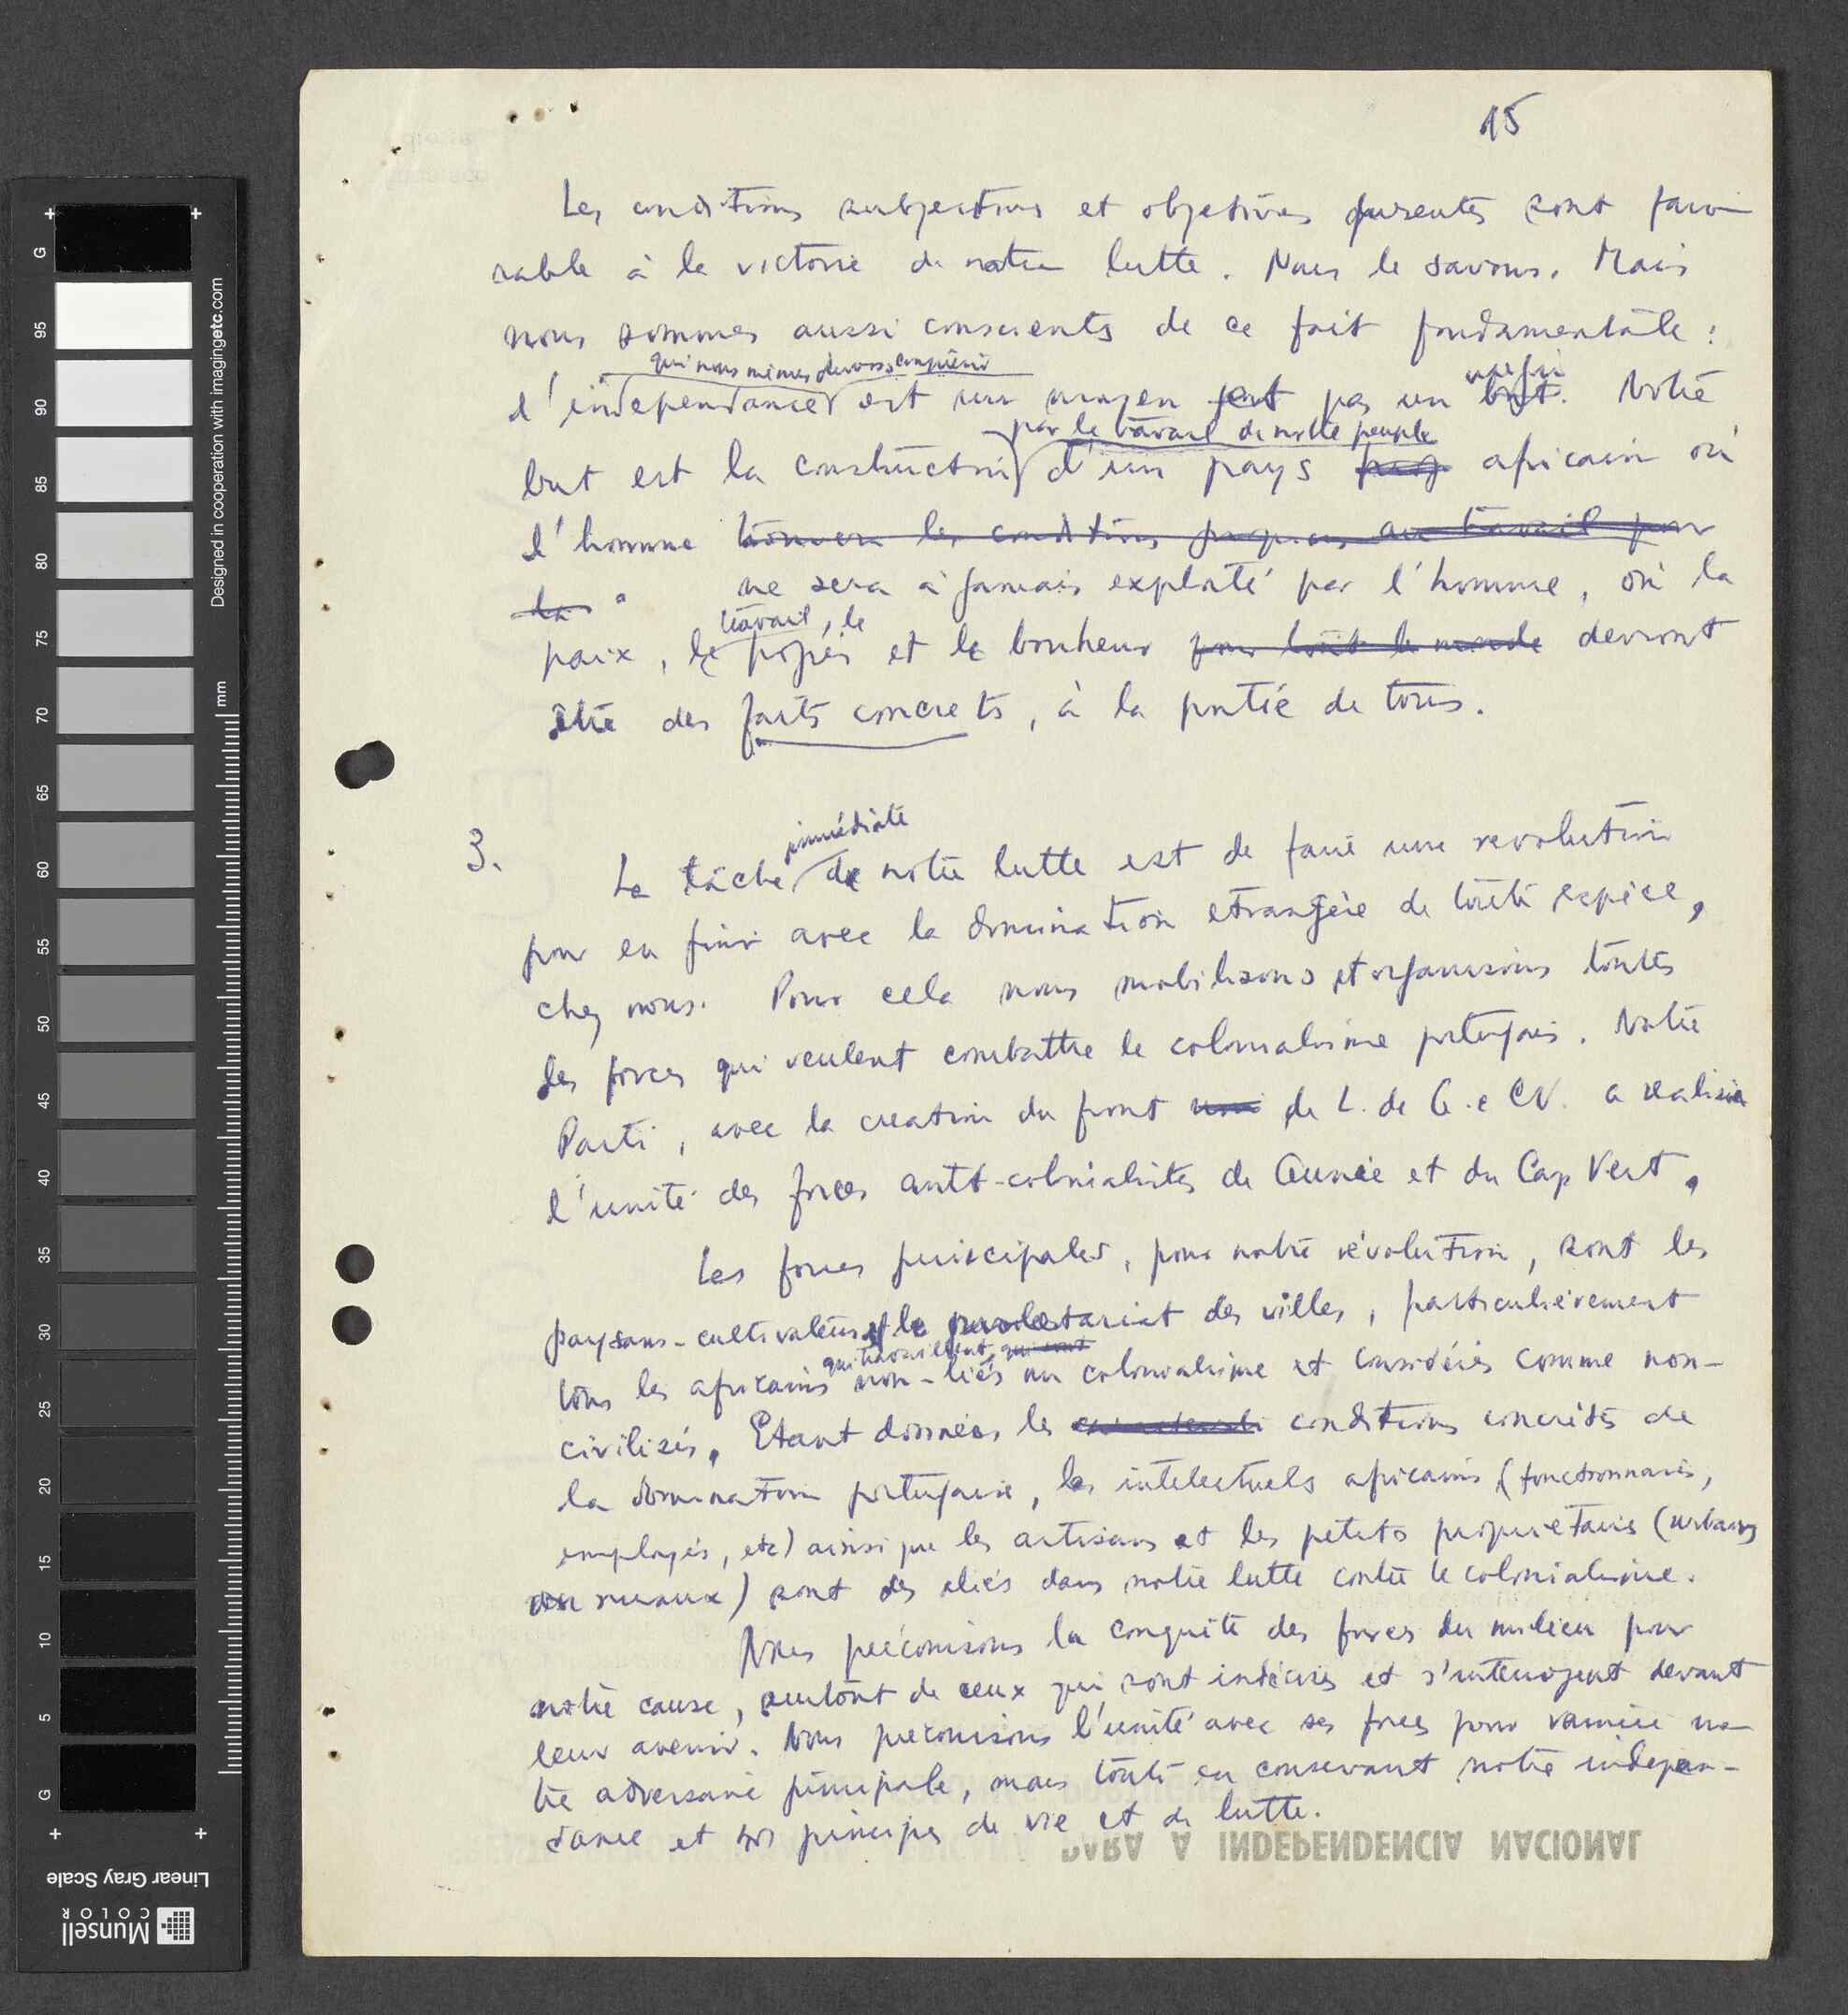 15
Les conditions subjectives et objetives presentes sont favo-
rable à la victoire de notre lutte. Nous le savons. Mais
nous sommes aussi conscients de ce fait fondamentale :
qui nous mêmes devons conquérir
l'independance est un moyen pas un but. Notre
une fin
par le travail de notre peuple
but est la construction d'un pays africain où
l'homme trouvera les conditions propices au travail pour
la
ne sera à jamais exploité par l'homme, où la
travail, le
paix, le progrès et le bonheur pour tout le monde devront
être des faits concrets, à la portée de tous.
immédiate
3. La tâche de notre lutte est de faire une revolution
pour en finir avec la domination etrangère de toute espèce,
chez nous. Pour cela nous mobilisons et organisons toutes
les forces qui veulent combattre le colonialisme portugais. Notre
Parti, avec la creation du front de L. de G. e CV. a realisée
l'unité des forces anti-colonialistes de Guinée et du Cap Vert.
Les forces principales, pour notre révolution, sont les
paysans-cultivateurs et le proletariat des villes, particulièrement
qui travaillent, qui sont
tous les africains non-liés au colonialisme et considérés comme non-
civilisés. Etant données les conditions concrètes de
la domination portugaise, les intelectuels africains (fonctionnaires,
employés, etc) ainsi que les artisans et les petits proprietaires (urbains
ou ruraux) sont des aliés dans notre lutte contre le colonialisme.
Nous préconisons la conquête des forces du milieu pour
notre cause, surtout de ceux qui sont indécises et s'interrogent devant
leur avenir. Nous preconisons l'unité avec ses forces pour vaincre no-
tre adversaire principale, mais toute en conservant notre indepen-
dance et nos principes de vie et de lutte.
PARA A INDEPENDENCIA NACIONAL
G
95
90
85
80
75
70
65
60
55
50
45
40
35
30
25
20
15
10
5
G
mm
Designed in cooperation with imagingetc.com
Linear Gray Scale
Munsell
COLOR